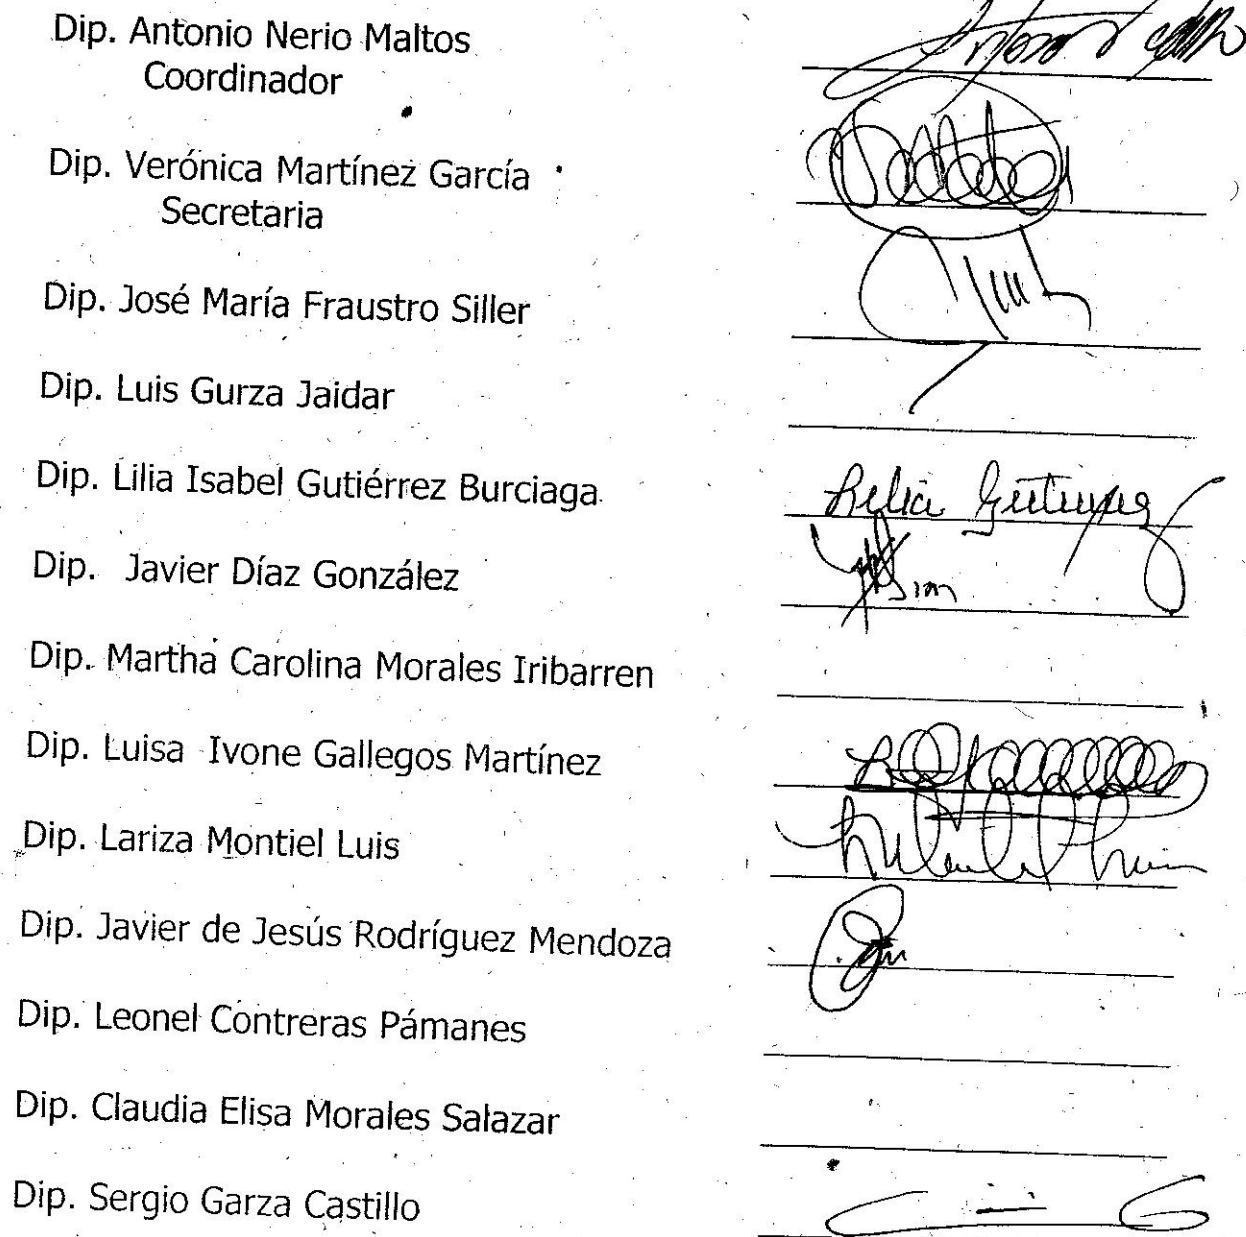 Dip. Antonio Nerio Maltos
Coordinador
Dip. Verónica Martínez García
Secretaria
Dip. José María Fraustro Siller
Dip. Luis Gurza Jaidar
Dip. Lilia Isabel Gutiérrez Burciaga
Lilia Gutiérrez
Dip. Javier Díaz González
Dip. Martha Carolina Morales Iribarren
Dip. Luisa Ivone Gallegos Martínez
Dip. Lariza Montiel Luis
Dip. Javier de Jesús Rodríguez Mendoza
Dip. Leonel Contreras Pámanes
Dip. Claudia Elisa Morales Salazar
Dip. Sergio Garza Castillo